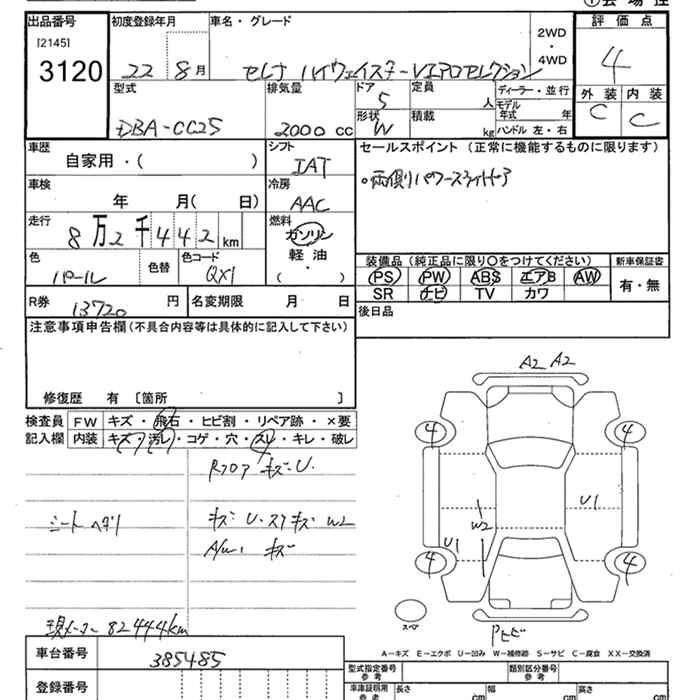 出品番号
[2145]
3120
初度登録年月
22 8月
車名・グレード
セレナ ハイウェイスターVエアロセレクション
2WD
・
4WD
評価点
4
外装 内装
C C
型式
DBA-CC25
排気量
2000 cc
ドア
5
形状
W
定員
人
積載
kg
ディーラー・並行
モデル年式 年
ハンドル 左・右
車歴
自家用・( )
シフト
IAT
セールスポイント (正常に機能するものに限ります)
○両側パワースライドドア
車検
年 月( 日)
冷房
AAC
走行
8万2千442km
燃料
ガソリン
軽油・
( )
色
パール
色替
色コード
QX1
装備品 (純正品に限り○をつけてください)
PS PW ABS エアB AW
SR ナビ TV カワ
新車保証書
有・無
R券
13720円
名変期限 月 日
後日品
注意事項申告欄(不具合内容等は具体的に記入して下さい)
修復歴 有 〔箇所 〕
検査員
記入欄
FW キズ・飛石・ヒビ割・リペア跡・×要
内装 キズ・汚レ・コゲ・穴・スレ・キレ・破レ
Rフロア キズU.
シートヘタリ
キズU.スリキズ W2
A/W. キズ
現メーター 82444km
A2 A2
4 4
U1
W2
U1
4 4
スペア
A-キズ E-エクボ U-凹み W-補修跡 S-サビ C-腐食 XX-交換済
車台番号
385485
登録番号
型式指定番号
参考
類別区分番号
参考
車庫証明用
参考
長さ cm
幅 cm
高さ cm